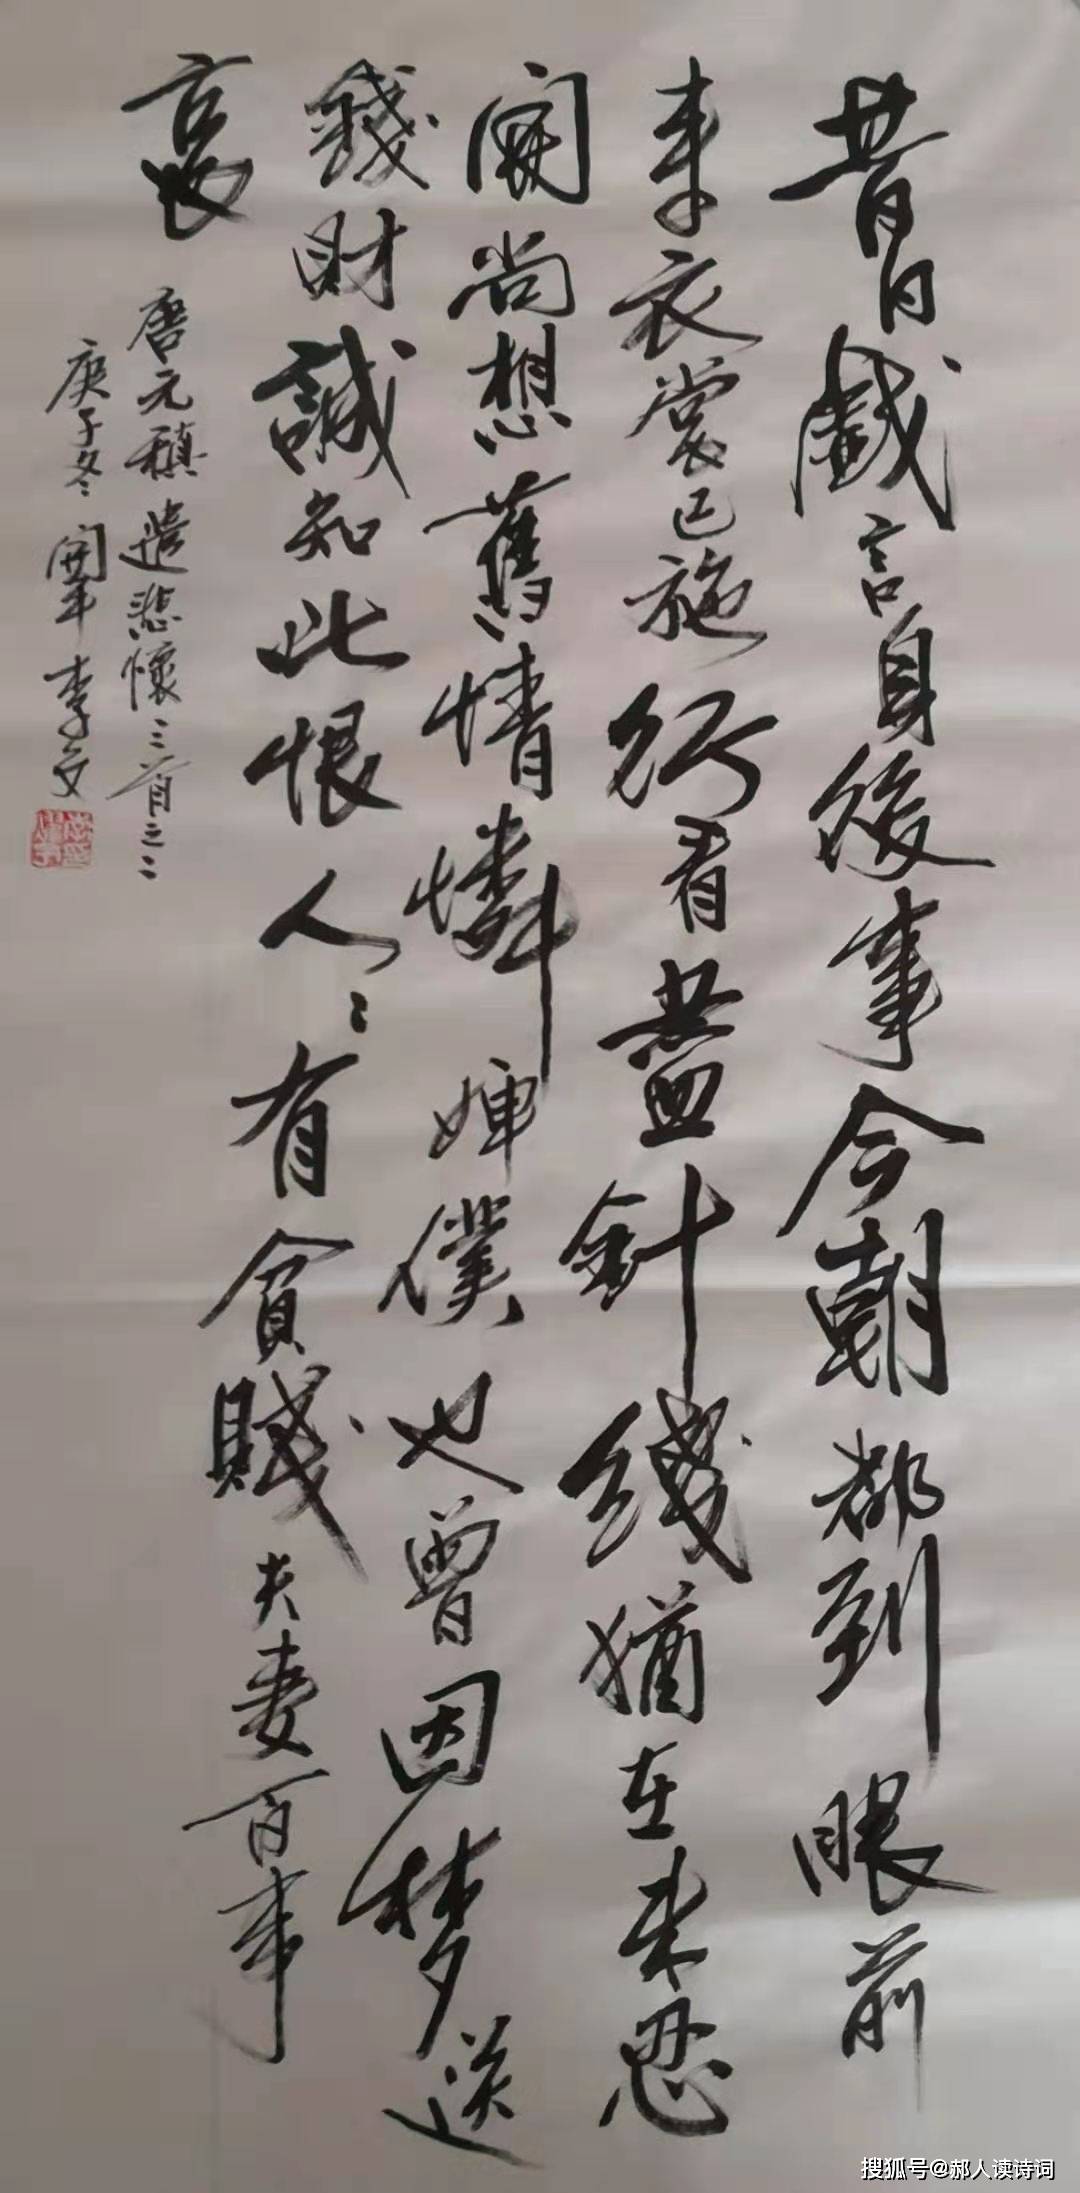 昔日戲言身後事今朝都到眼前
来衣裳已施行看盡針綫猶在未忍
開尚想舊情憐婢僕也曾因梦送
錢財誠知此恨人〻有貧賤夫妻百事
哀
唐元稹遣悲懷三首之二
庚子冬 李文
搜狐号@郝人读诗词